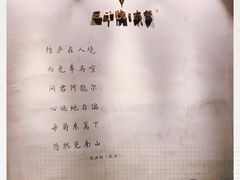 结庐在人境，
而无车马喧。
问君何能尔，
心远地自偏。
采菊东篱下，
悠然见南山。